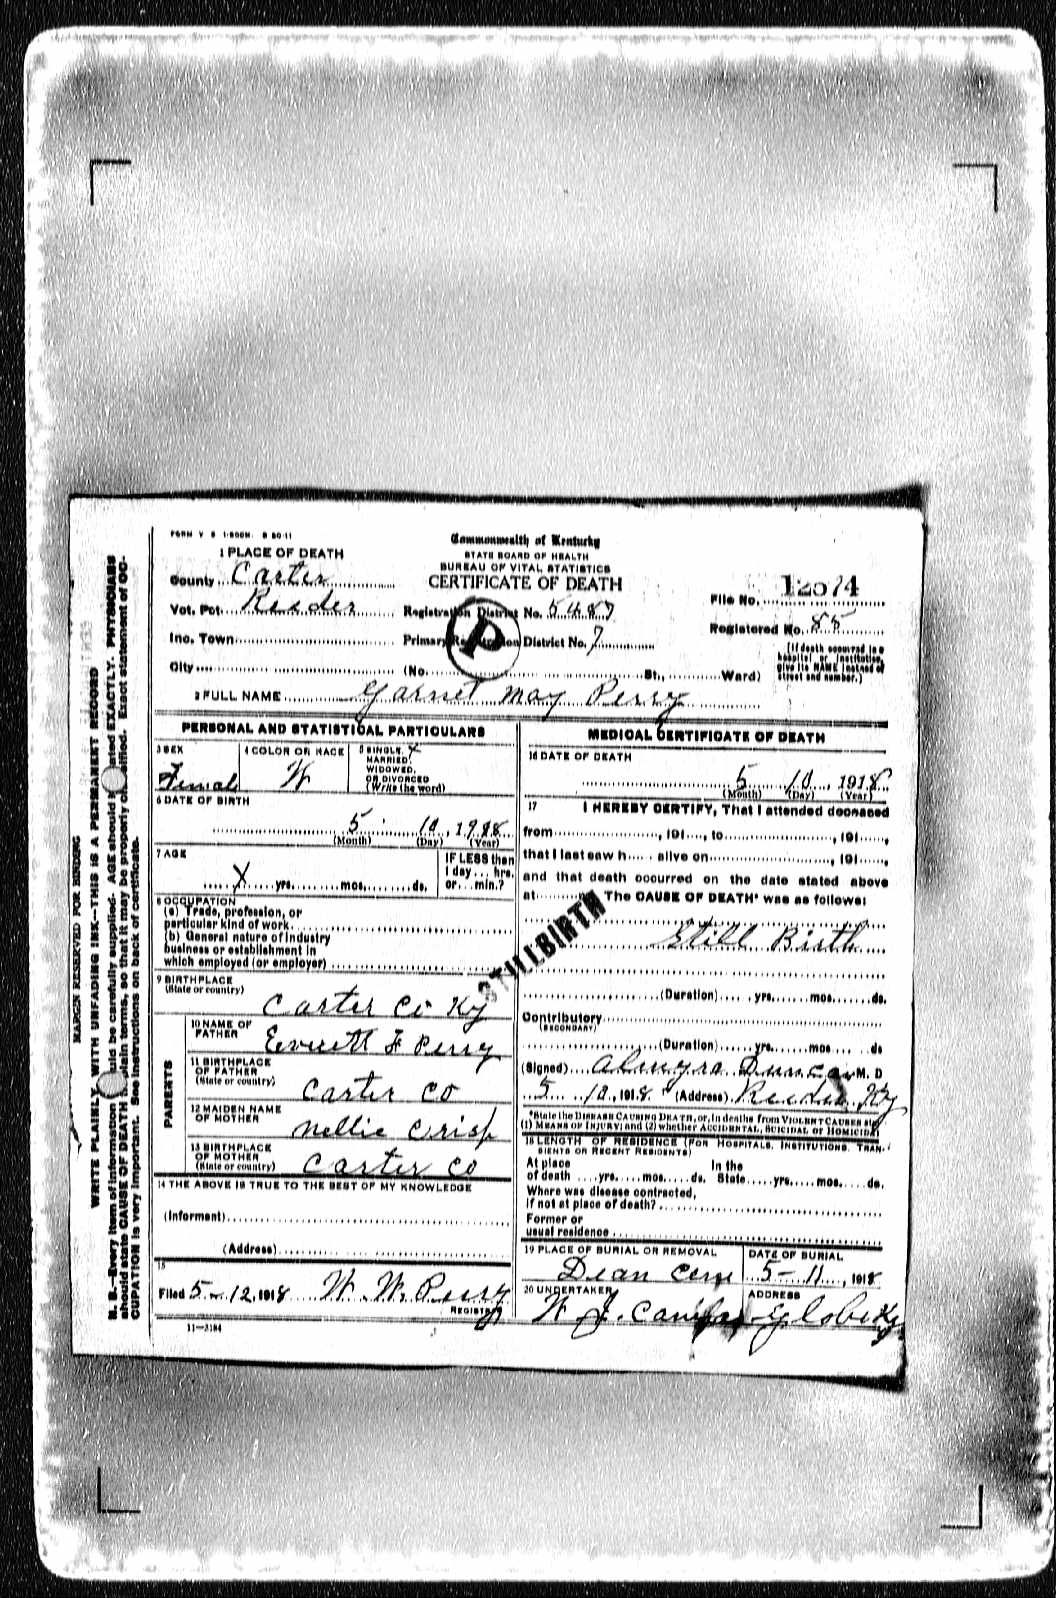 FORM V S
Commonwealth of Kentucky
STATE BOARD OF HEALTH
BUREAU OF VITAL STATISTICS
CERTIFICATE OF DEATH
1 PLACE OF DEATH
County Carter
Vot. Pct. Reeder
Inc. Town
City
Registration District No. 5487
Primary Registration District No. 7
(No. St., Ward)
P
File No.
Registered No. 85
[If death occurred in a
hospital or institution,
give its NAME instead of
street and number.]
2 FULL NAME Garnet May Perry
PERSONAL AND STATISTICAL PARTICULARS
3 SEX
Female
4 COLOR OR RACE
W
5 SINGLE, X
MARRIED,
WIDOWED,
OR DIVORCED
(Write the word)
6 DATE OF BIRTH
5 10, 1918
(Month) (Day) (Year)
7 AGE
X yrs. mos. ds.
IF LESS than
1 day ... hrs.
or ... min.?
8 OCCUPATION
(a) Trade, profession, or
particular kind of work
(b) General nature of industry
business or establishment in
which employed (or employer)
STILLBIRTH
9 BIRTHPLACE
(State or country)
Carter Co Ky
PARENTS
10 NAME OF
FATHER
Everett F Perry
11 BIRTHPLACE
OF FATHER
(State or country)
Carter Co
12 MAIDEN NAME
OF MOTHER
Nellie Crisp
13 BIRTHPLACE
OF MOTHER
(State or country)
Carter Co
14 THE ABOVE IS TRUE TO THE BEST OF MY KNOWLEDGE
(Informant)
(Address)
15
Filed 5-12, 1918 W. W. Perry
REGISTRAR
11-3184
MEDICAL CERTIFICATE OF DEATH
16 DATE OF DEATH
5 10, 1918
(Month) (Day) (Year)
17 I HEREBY CERTIFY, That I attended deceased
from , 191 , to , 191 ,
that I last saw h alive on , 191 ,
and that death occurred on the date stated above
at m. The CAUSE OF DEATH* was as follows:
Still Birth
(Duration) yrs. mos. ds.
Contributory
(SECONDARY)
(Duration) yrs. mos. ds
(Signed) Almyra Duncan M. D
5 10, 1918 (Address) Reeder Ky
*State the DISEASE CAUSING DEATH, or, in deaths from VIOLENT CAUSES state
(1) MEANS OF INJURY; and (2) whether ACCIDENTAL, SUICIDAL or HOMICIDAL
18 LENGTH OF RESIDENCE (FOR HOSPITALS, INSTITUTIONS, TRAN-
SIENTS OR RECENT RESIDENTS)
At place In the
of death yrs. mos. ds. State yrs. mos. ds.
Where was disease contracted,
if not at place of death?
Former or
usual residence
19 PLACE OF BURIAL OR REMOVAL
Dean Cem
DATE OF BURIAL
5-11, 1918
20 UNDERTAKER
W. J.
ADDRESS
Globe Ky
MARGIN RESERVED FOR BINDING
WRITE PLAINLY, WITH UNFADING INK—THIS IS A PERMANENT RECORD
N. B.—Every item of information should be carefully supplied. AGE should be stated EXACTLY. PHYSICIANS
should state CAUSE OF DEATH in plain terms, so that it may be properly classified. Exact statement of OC-
CUPATION is very important. See instructions on back of certificate.